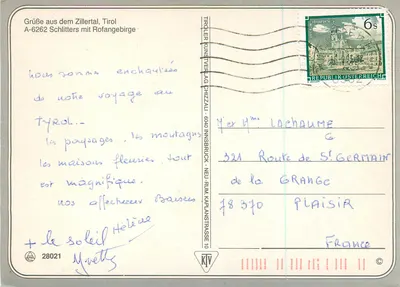 Grüße aus dem Zillertal, Tirol
A-6262 Schlitters mit Rofangebirge
Nous sommes enchantées
de notre voyage au
TYROL.
les paysages, les montagnes
les maisons fleuries, tout
est magnifique.
nos affectueux Baisers
Hélène
+ le soleil
Yvette
28021
TIROLER KUNSTVERLAG CHIZZALI · 6040 INNSBRUCK - NEU-RUM, KAPLANSTRASSE 10
KTV
6s
REPUBLIK ÖSTERREICH
Mr et Mme LACHAUME
G
321 Route de St GERMAIN
de la GRANGE
78370 PLAISIR
France